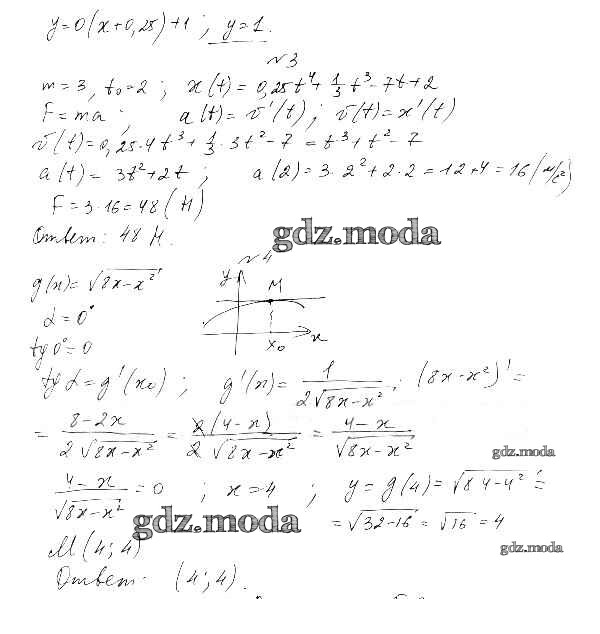 y=0(x+0,25)+1 ; y=1.
№3
m=3, t₀=2 ; x(t)=0,25t⁴+1/3 t³-7t+2
F=ma ; a(t)=v'(t); v(t)=x'(t)
v(t)=0,25·4t³+1/3·3t²-7=t³+t²-7
a(t)=3t²+2t ; a(2)=3·2²+2·2=12+4=16(м/с²)
F=3·16=48(Н)
Ответ: 48 Н.
gdz.moda
№4
g(x)=√(8x-x²)
y M
α=0°
x₀ x
tg0°=0
tgα=g'(x₀) ; g'(x)=1/(2√(8x-x²)) · (8x-x²)'=
=(8-2x)/(2√(8x-x²))=2(4-x)/(2√(8x-x²))=(4-x)/√(8x-x²)
gdz.moda
(4-x)/√(8x-x²)=0 ; x=4 ; y=g(4)=√(8·4-4²)=
gdz.moda
=√(32-16)=√16=4
M(4;4)
gdz.moda
Ответ: (4;4).